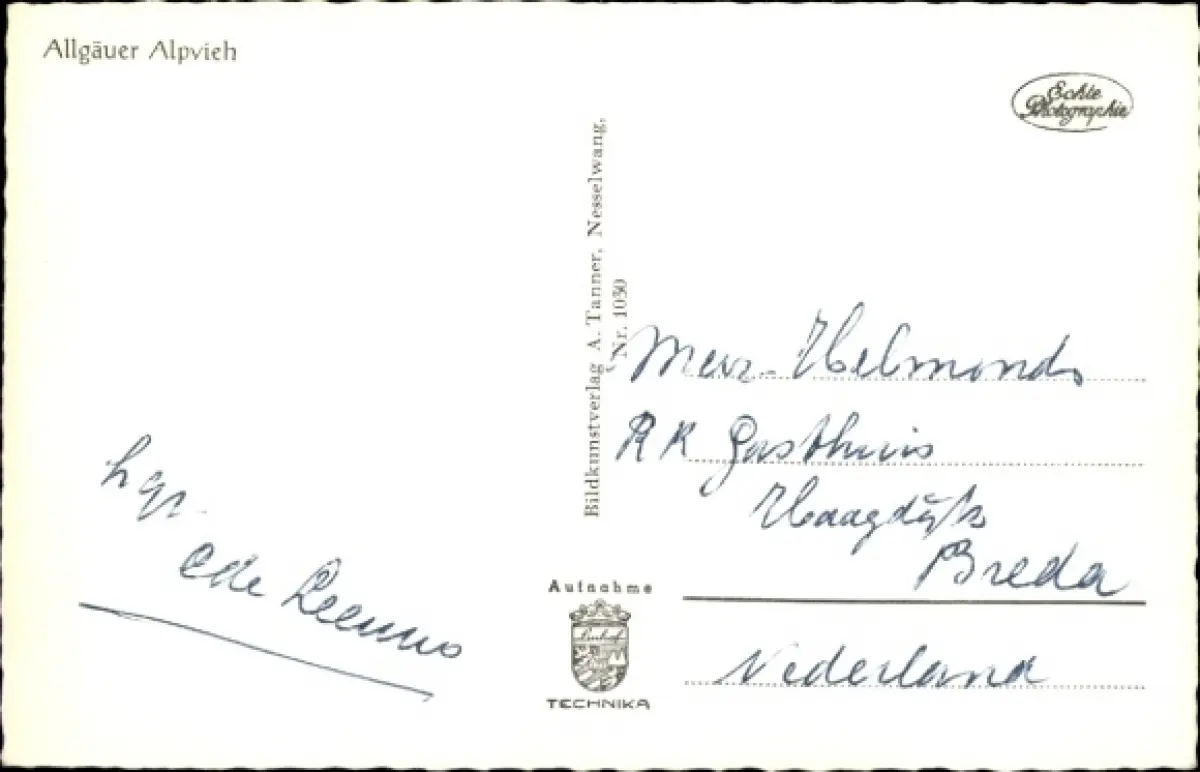 Allgäuer Alpvieh
Echte
Photographie
Bildkunstverlag A. Tanner, Nesselwang,
Nr. 1050
Mevr. Helmonds
RK Gasthuis
Haagdijk
Breda
Nederland
hgr.
Aufnahme
Linhof
TECHNIKA